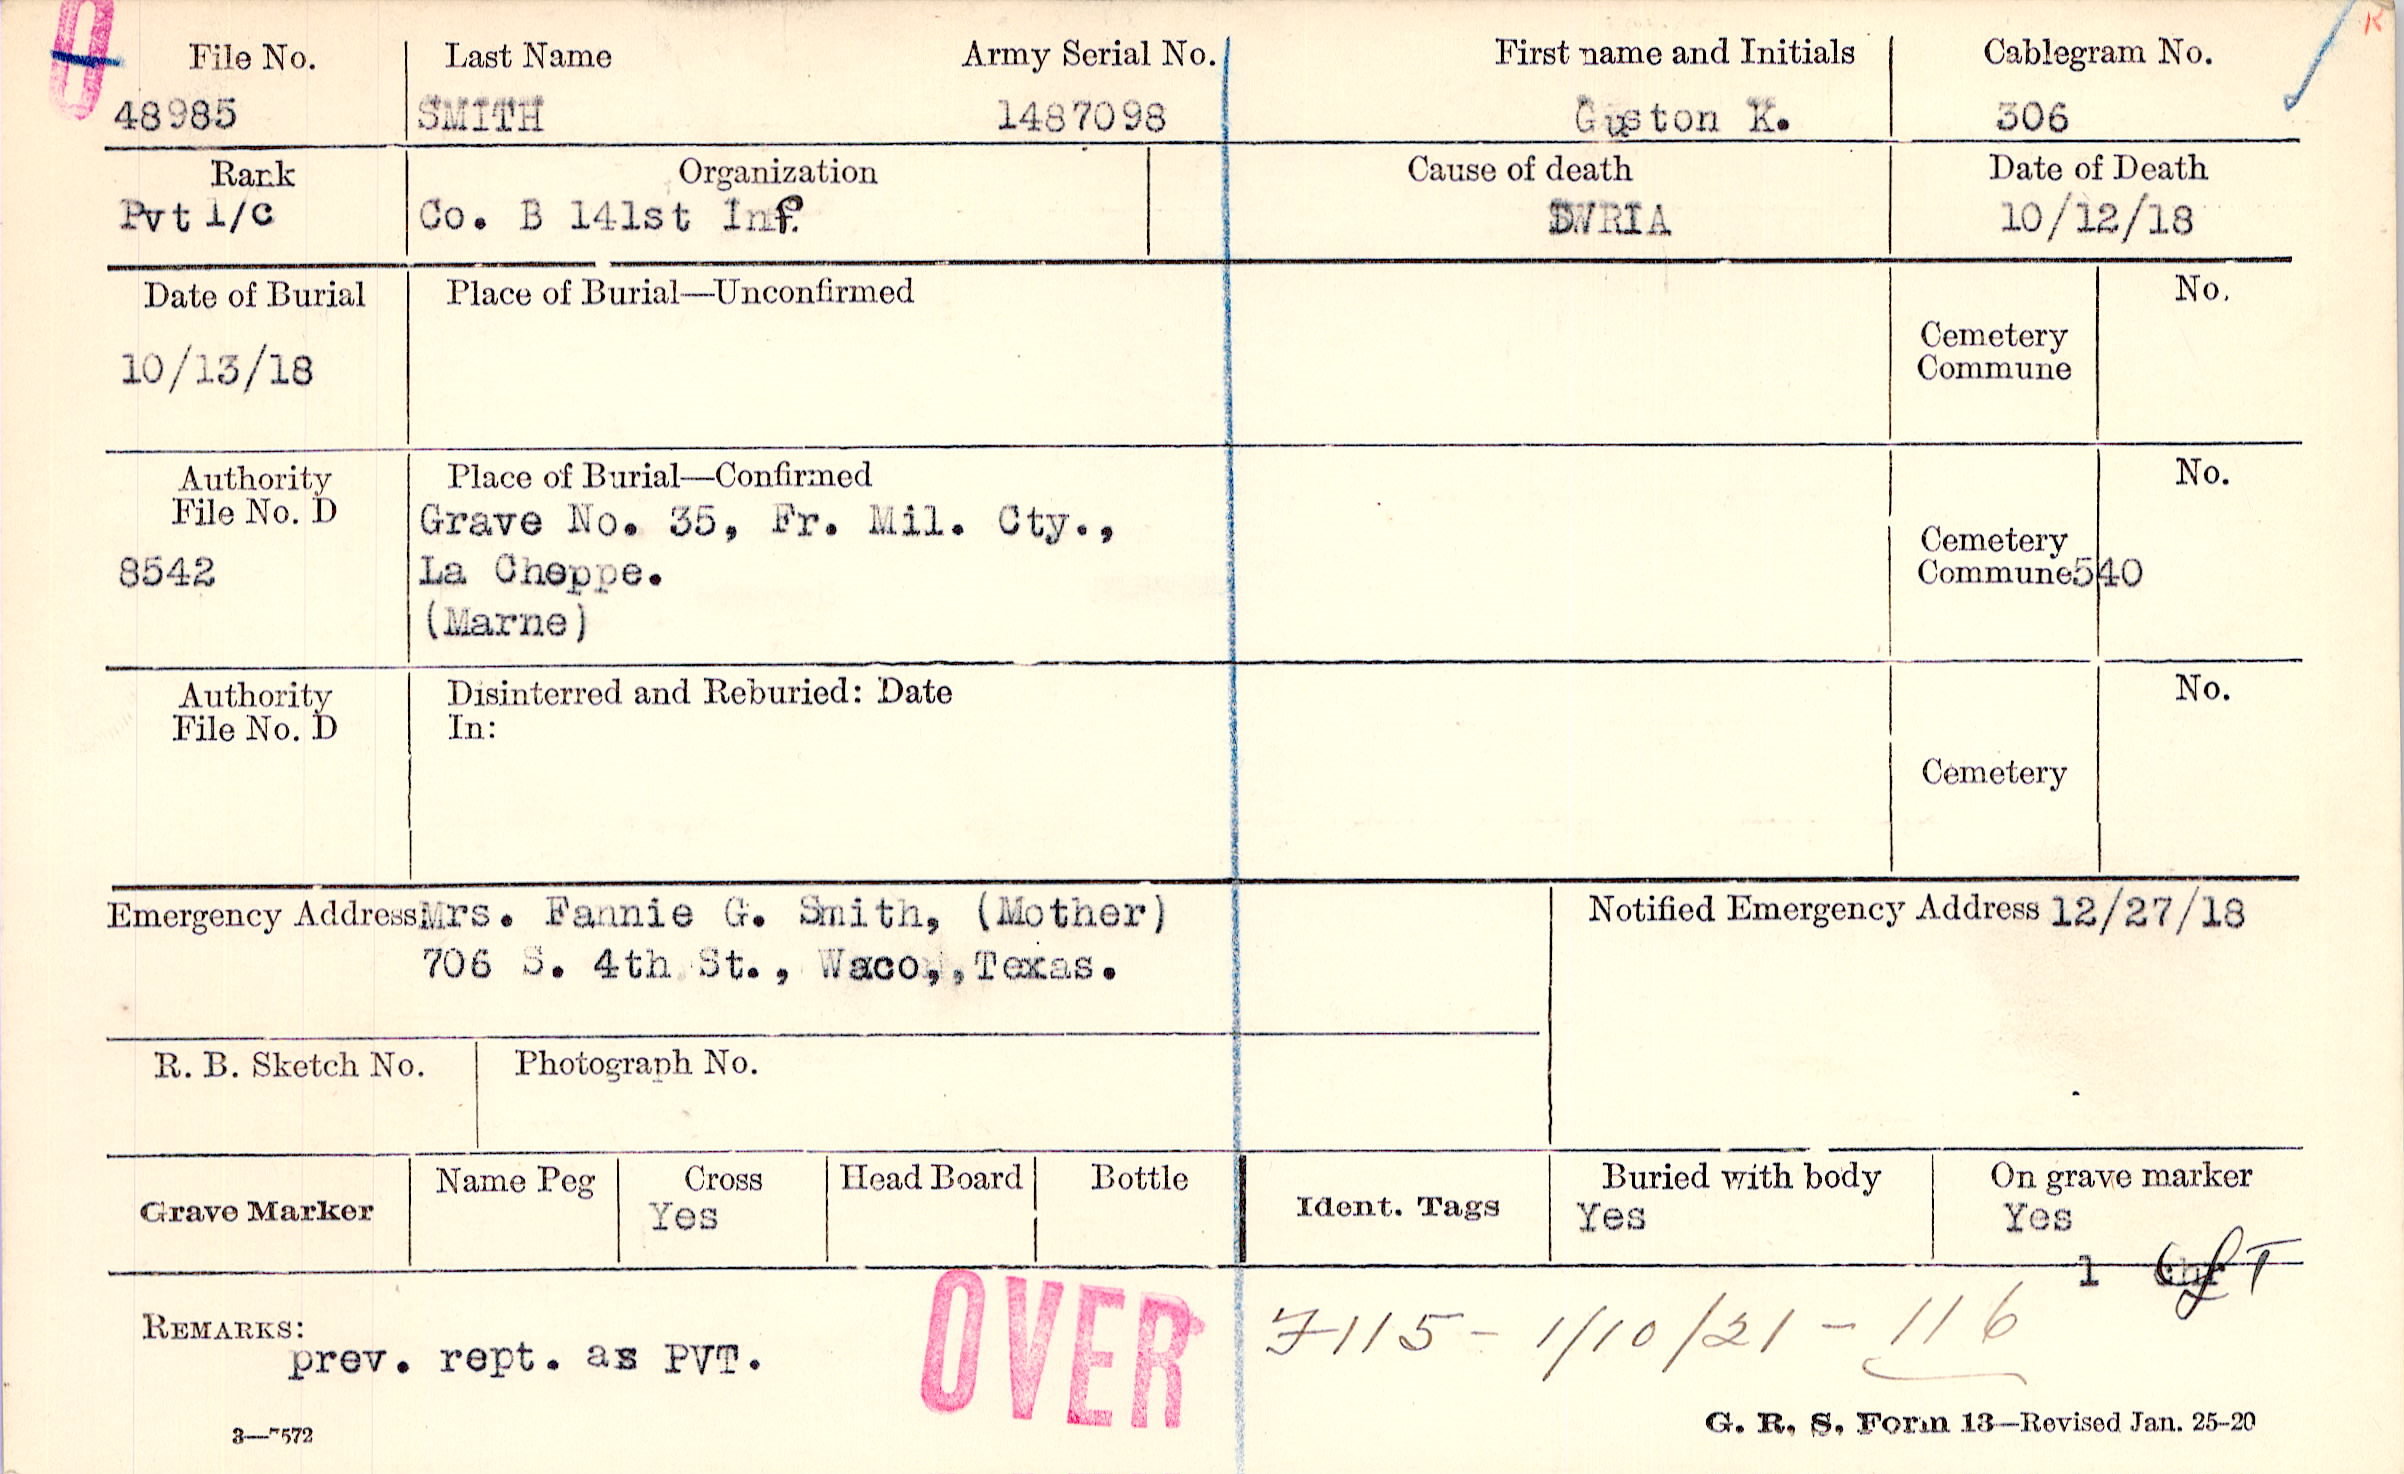 File No. Last Name Army Serial No. First name and Initials Cablegram No.
48985 SMITH 1487098 Guston K. 306
Rank Organization Cause of death Date of Death
Pvt 1/c Co. B 141st Inf. DWRIA 10/12/18
Date of Burial Place of Burial—Unconfirmed No.
Cemetery
Commune
10/13/18
Authority Place of Burial—Confirmed No.
File No. D Grave No. 35, Fr. Mil. Cty.,
Cemetery
8542 La Cheppe. Commune 540
(Marne)
Authority Disinterred and Reburied: Date No.
File No. D In:
Cemetery
Emergency Address Mrs. Fannie G. Smith, (Mother) Notified Emergency Address 12/27/18
706 S. 4th St., Waco,,Texas.
R. B. Sketch No. Photograph No.
Name Peg Cross Head Board Bottle Buried with body On grave marker
Grave Marker Yes Ident. Tags Yes Yes
1
REMARKS: OVER 7115 - 1/10/21 - 116
prev. rept. as PVT.
3—7572 G. R. S. Form 13—Revised Jan. 25-20